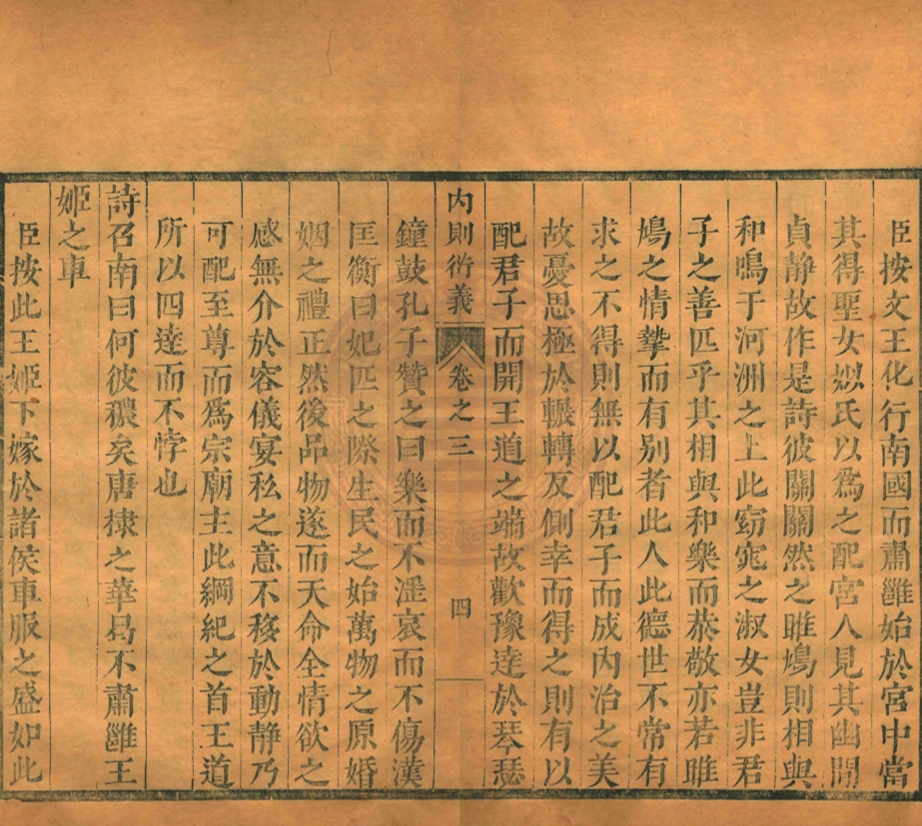 臣按文王化行南國而肅雝始於宮中當
其得聖女姒氏以為之配宮人見其幽閒
貞靜故作是詩彼關關然之雎鳩則相與
和鳴于河洲之上此窈窕之淑女豈非君
子之善匹乎其相與和樂而恭敬亦若雎
鳩之情摯而有别者此人此德世不常有
求之不得則無以配君子而成內治之美
故憂思極於輾轉反側幸而得之則有以
配君子而開王道之端故歡豫達於琴瑟
內則衍義 卷之三 四
鐘鼓孔子贊之曰樂而不淫哀而不傷漢
匡衡曰妃匹之際生民之始萬物之原婚
姻之禮正然後品物遂而天命全情欲之
感無介於容儀宴私之意不移於動靜乃
可配至尊而為宗廟主此綱紀之首王道
所以四達而不悖也
詩召南曰何彼穠矣唐棣之華曷不肅雝王
姬之車
臣按此王姬下嫁於諸侯車服之盛如此